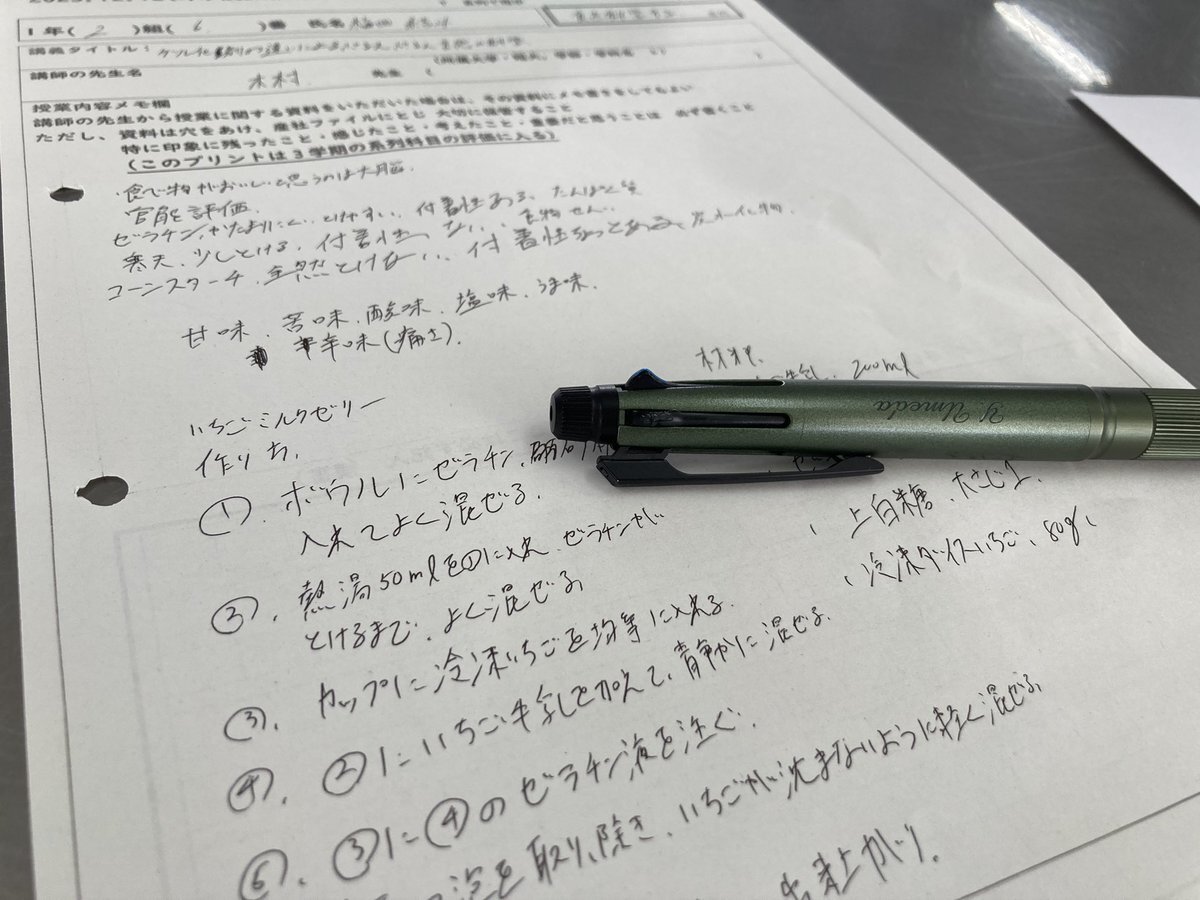 1年(2)組(6)番 氏名 梅田
講義タイトル：ゲル化剤の違いによる
講師の先生名 木村 先生
授業内容メモ欄
講師の先生から授業に関する資料をいただいた場合は、その資料にメモ書きをしてもよい
ただし、資料は穴をあけ、産社ファイルにとじ 大切に保管すること
特に印象に残ったこと・感じたこと・考えたこと・重要だと思うことは 必ず書くこと
(このプリントは3学期の系列科目の評価に入る)
・食べ物がおいしいと思うのは大脳。
官能評価。
ゼラチン、かたまりにくい、とけやすい、付着性ある、たんぱく質
寒天、少しとける、付着性、ない、食物せんい
コーンスターチ、全然とけない、付着性ちょっとある、炭水化物。
甘味、苦味、酸味、塩味、うま味。
辛味(痛さ)。
材料
牛乳、200ml
Y. Umeda
いちごミルクゼリー
作り方、
①、ボウルにゼラチン、
入れてよく混ぜる。
上白糖、大さじ1、
冷凍ダイスいちご、80g、
②、熱湯50mlを①に入れ、ゼラチンが
とけるまで、よく混ぜる
③、カップに冷凍いちごを均等に入れる。
④、②にいちご牛乳を加えて、静かに混ぜる。
⑥、③に④のゼラチン液を注ぐ。
泡を取り除き、いちごが沈まないように軽く混ぜる
出来上がり。